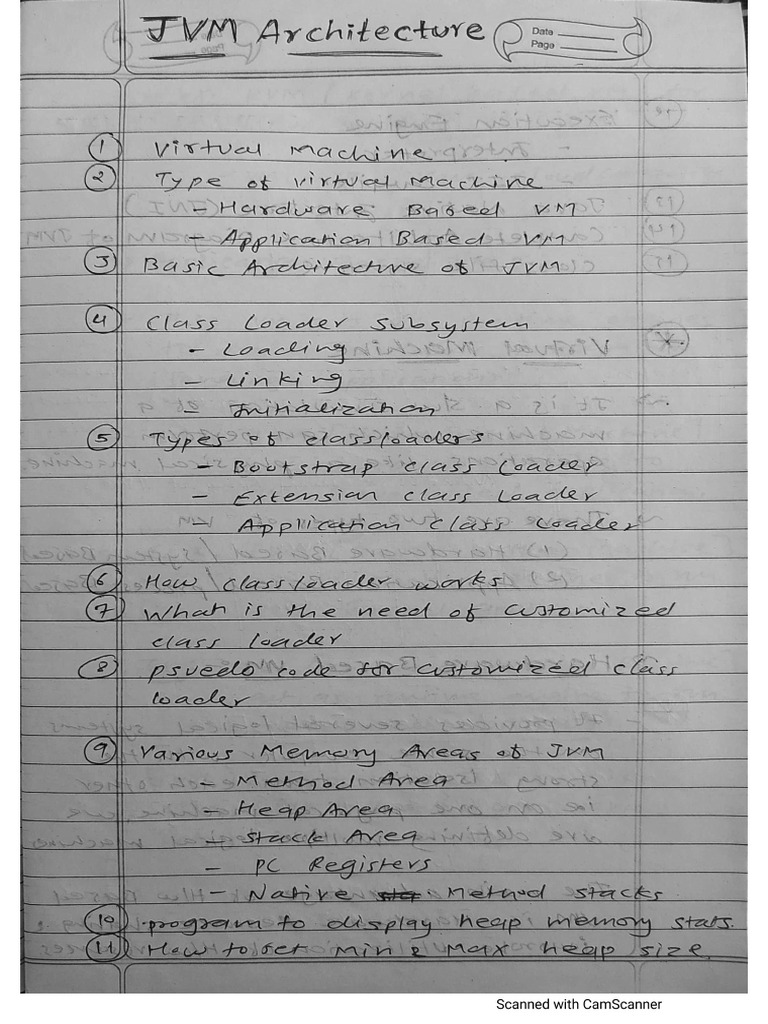 JVM Architecture
Date
Page
① Virtual Machine
② Type of virtual Machine
- Hardware Based VM
- Application Based VM
③ Basic Architecture of JVM
④ Class Loader Subsystem
- Loading
- Linking
- Initialization
⑤ Types of classloaders
- Bootstrap class Loader
- Extension class Loader
- Application class Loader
⑥ How classloader works
⑦ What is the need of customized
class loader
⑧ psuedo code for customized class
loader
⑨ Various Memory Areas of JVM
- Method Area
- Heap Area
- Stack Area
- PC Registers
- Native Method stacks
⑩ program to display heap memory stats.
⑪ How to set Min & Max heap size.
Scanned with CamScanner